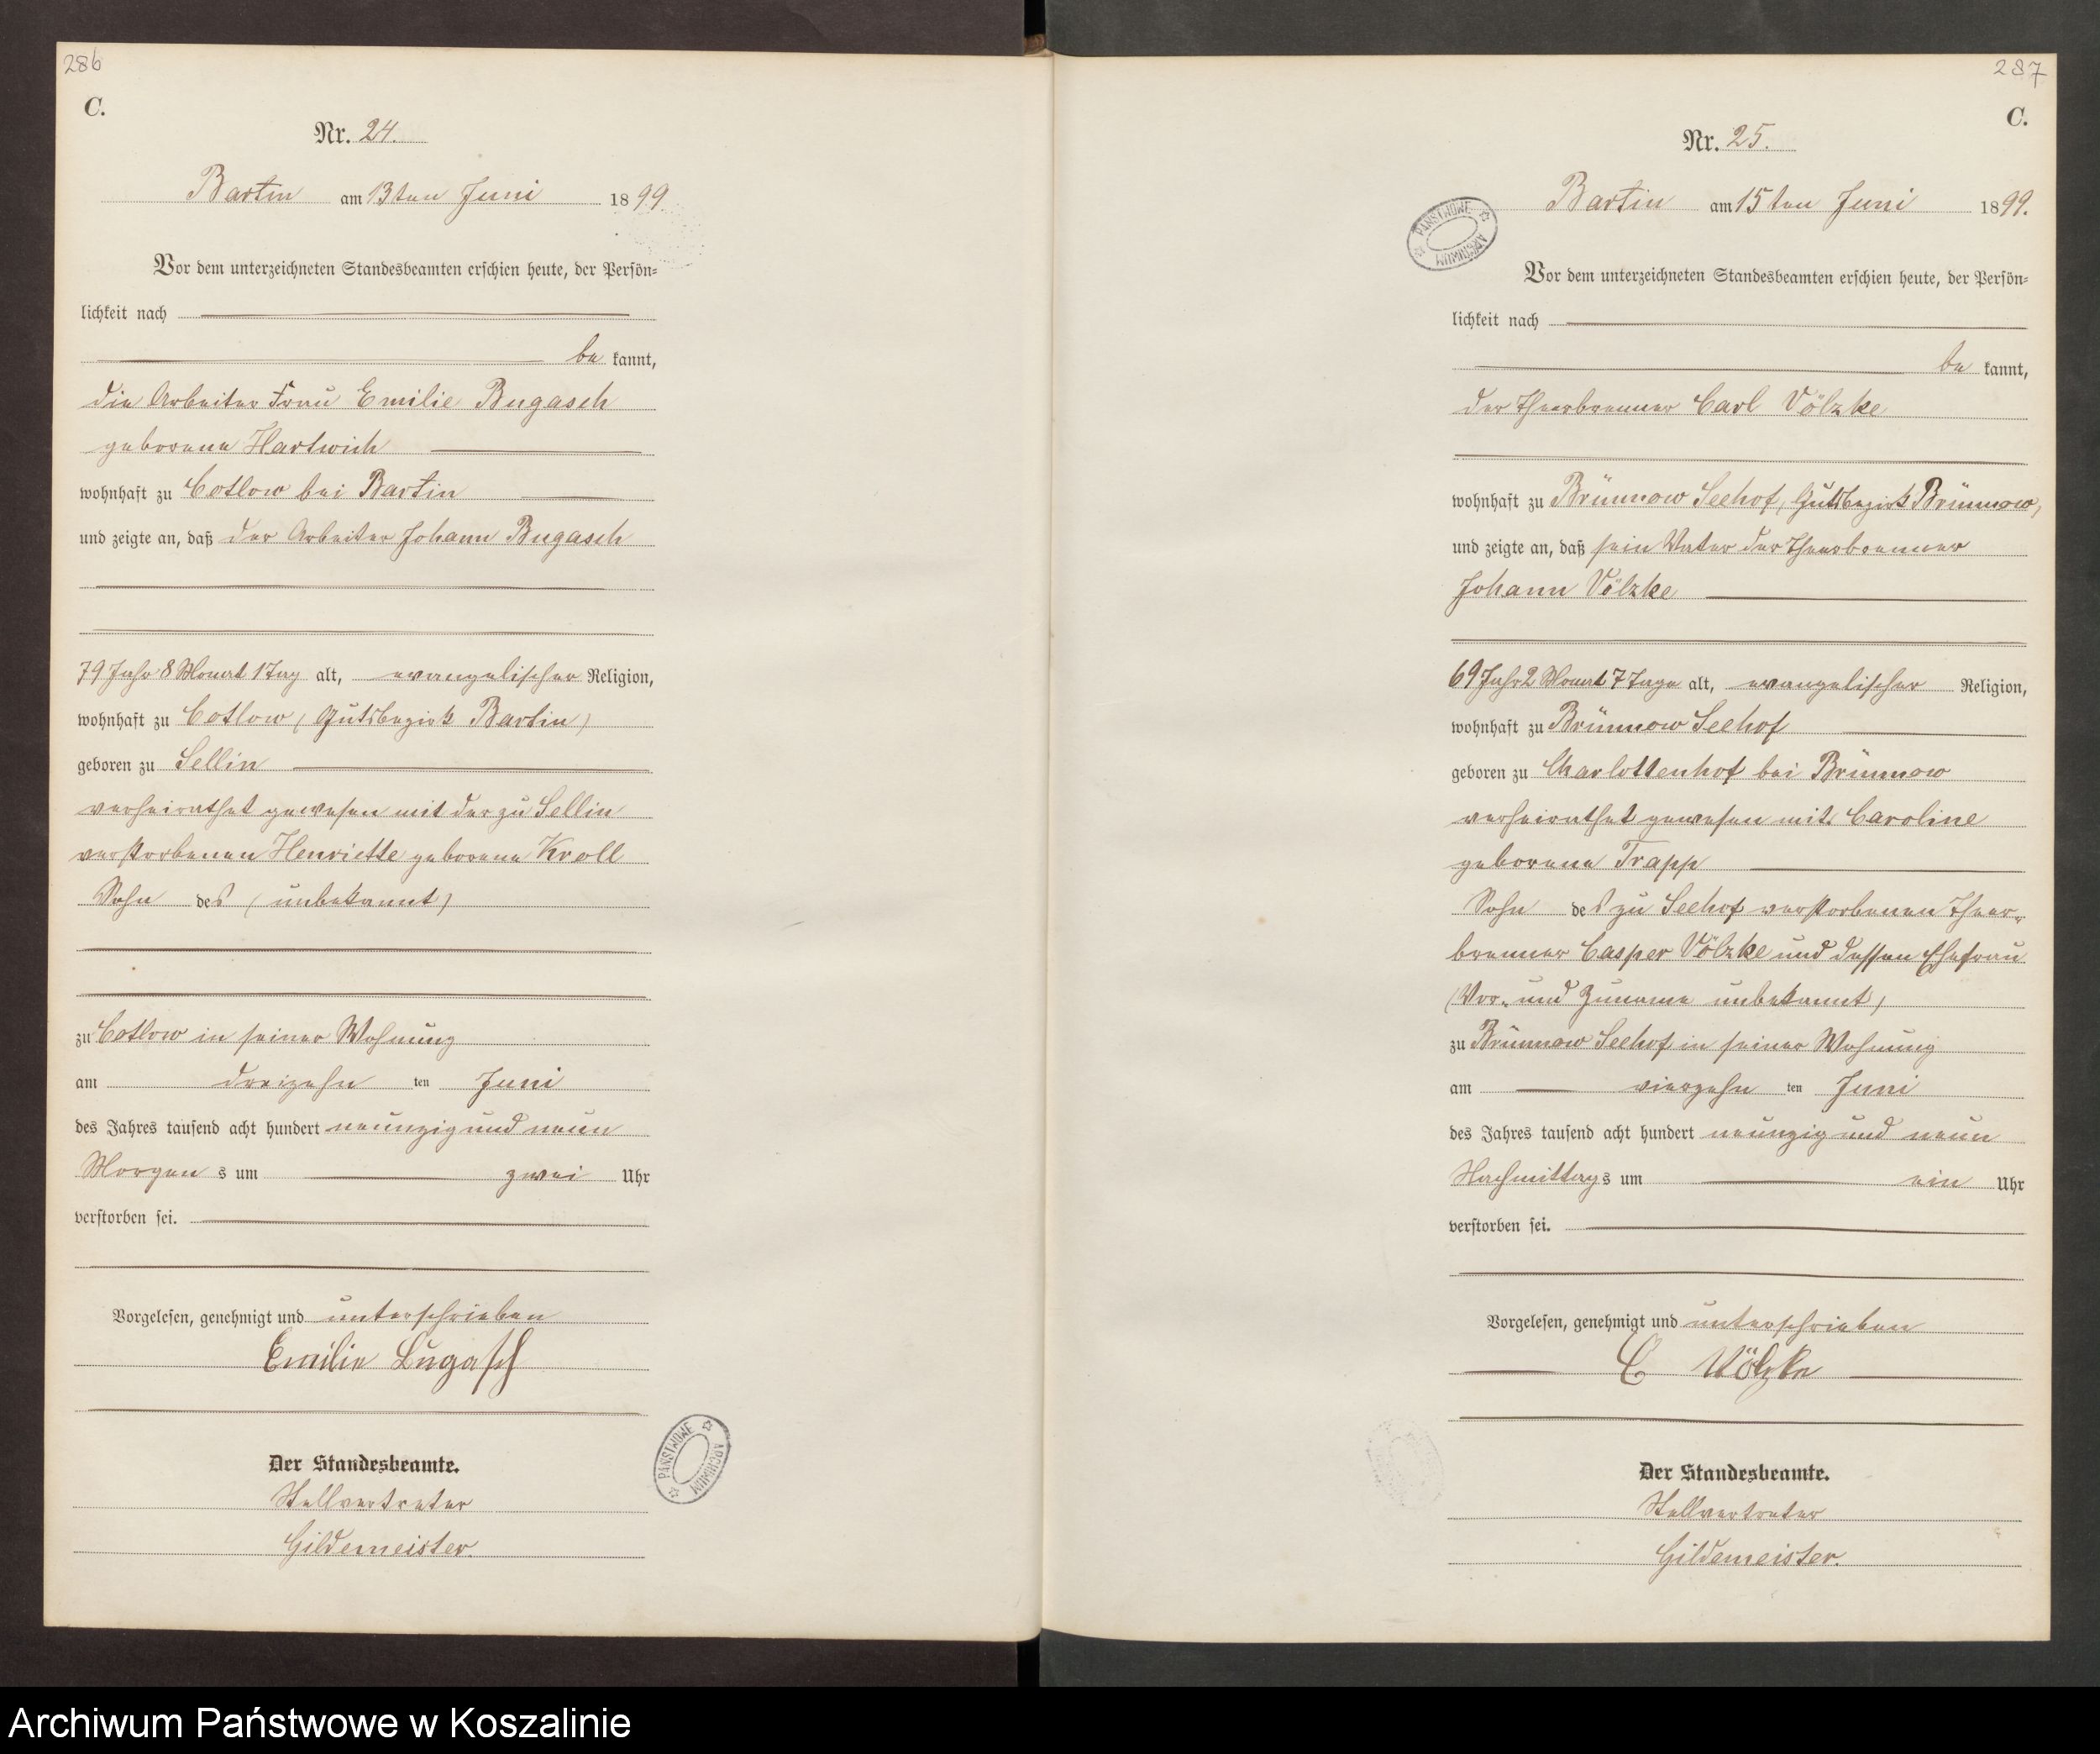 286
C.
Nr. 24.
Bartin am 13ten Juni 1899.
Vor dem unterzeichneten Standesbeamten erschien heute, der Persön=
lichkeit nach
be kannt,
die Arbeiter Frau Emilie Bugasch
geborene Hartwich
wohnhaft zu Cotlow bei Bartin
und zeigte an, daß der Arbeiter Johann Bugasch
79 Jahr 8 Monat 1 Tag alt, evangelischer Religion,
wohnhaft zu Cotlow (Gutsbezirk Bartin)
geboren zu Sellin
verheirathet gewesen mit der zu Sellin
verstorbenen Henriette geborene Kroll
Sohn des (unbekannt)
zu Cotlow in seiner Wohnung
am dreizehn ten Juni
des Jahres tausend acht hundert neunzig und neun
Morgen s um zwei Uhr
verstorben sei.
Vorgelesen, genehmigt und unterschrieben
Emilie Bugasch
Der Standesbeamte.
Stellvertreter
Gildemeister.
ARCHIWUM PAŃSTWOWE
287
C.
Nr. 25.
Bartin am 15ten Juni 1899.
PAŃSTWOWE ARCHIWUM
Vor dem unterzeichneten Standesbeamten erschien heute, der Persön=
lichkeit nach
be kannt,
der Theerbrenner Carl Völzke
wohnhaft zu Brünnow Seehof, Gutsbezirk Brünnow,
und zeigte an, daß sein Vater der Theerbrenner
Johann Völzke
69 Jahr 2 Monat 7 Tage alt, evangelischer Religion,
wohnhaft zu Brünnow Seehof
geboren zu Charlottenhof bei Brünnow
verheirathet gewesen mit Caroline
geborene Trapp
Sohn des zu Seehof verstorbenen Theer-
brenner Casper Völzke und dessen Ehefrau
(Vor- und Zuname unbekannt)
zu Brünnow Seehof in seiner Wohnung
am vierzehn ten Juni
des Jahres tausend acht hundert neunzig und neun
Nachmittag s um ein Uhr
verstorben sei.
Vorgelesen, genehmigt und unterschrieben
C Völzke
Der Standesbeamte.
Stellvertreter
Gildemeister.
Archiwum Państwowe w Koszalinie